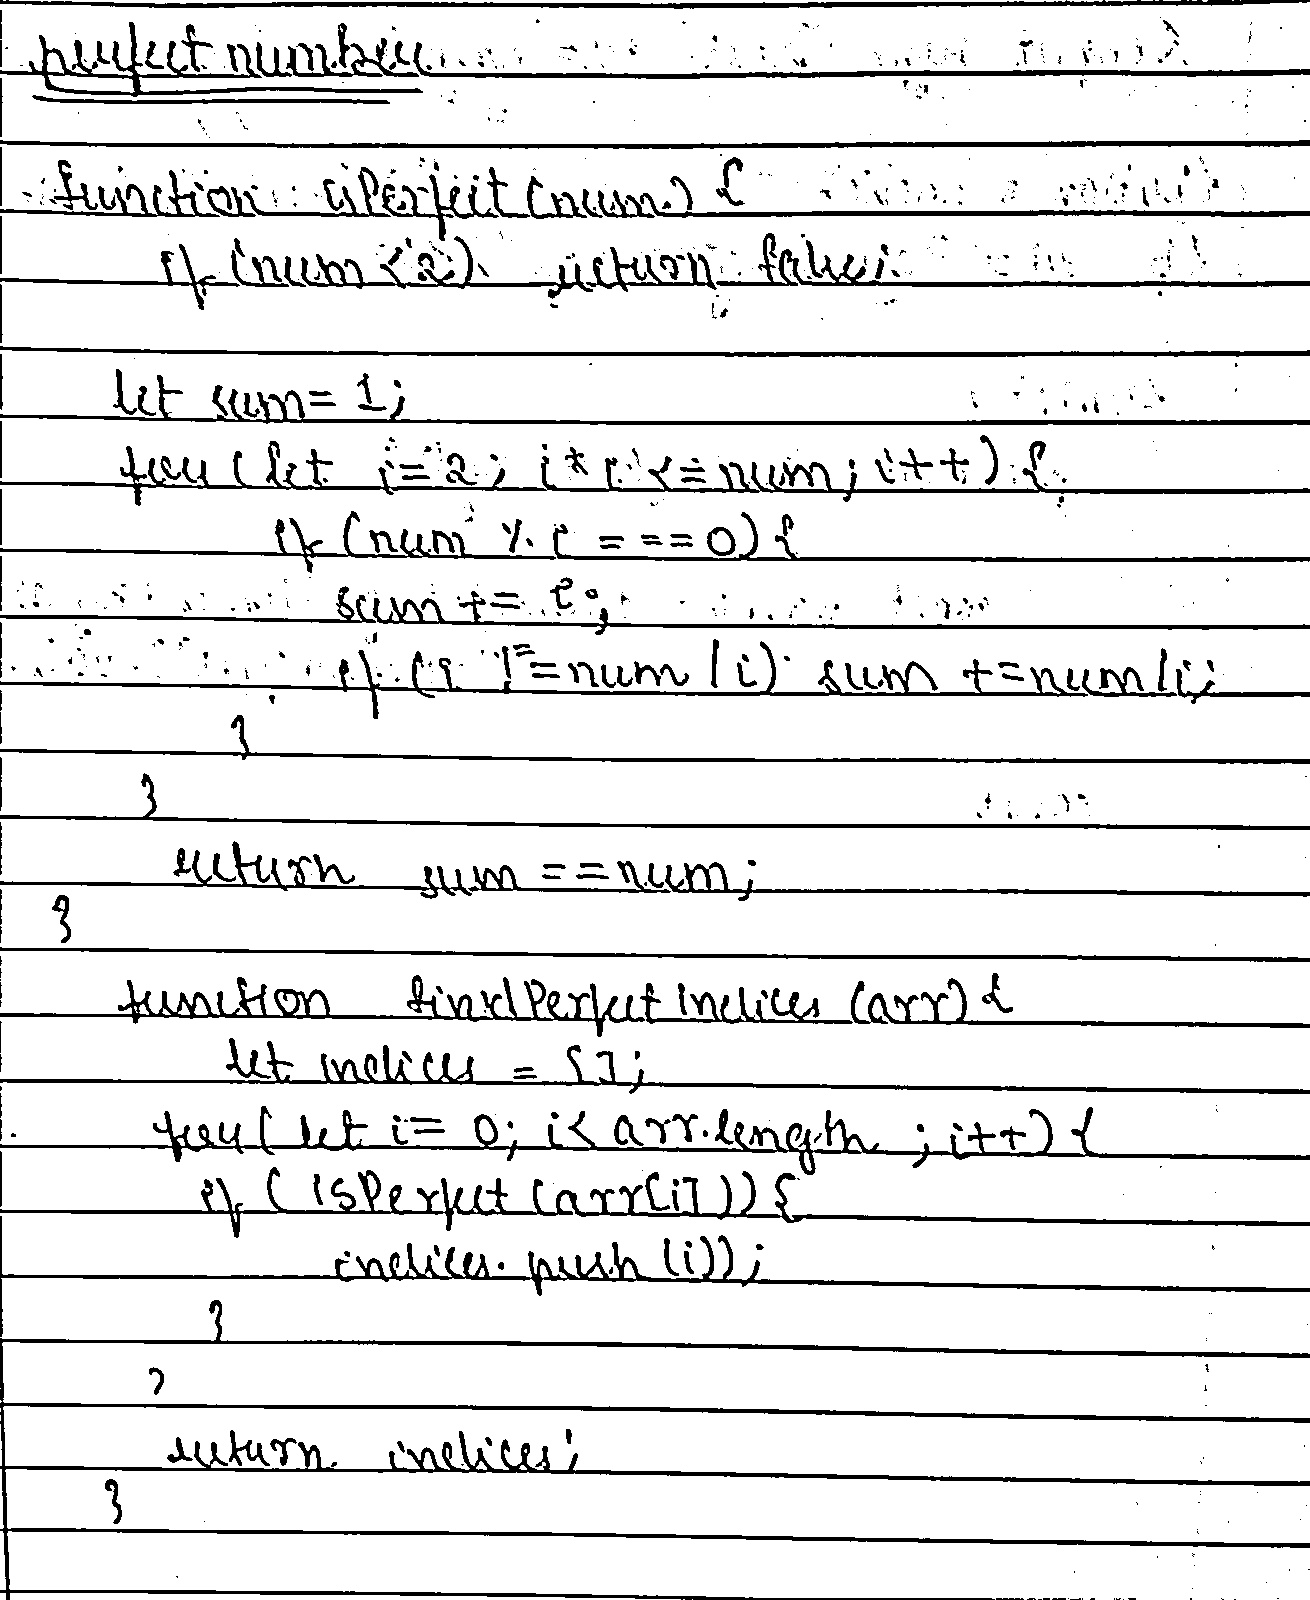 perfect number
function isPerfect (num) {
if (num < 2) return false;
let sum = 1;
for (let i = 2; i * i <= num; i++) {
if (num % i === 0) {
sum += i;
if (i != num / i) sum += num / i;
}
}
return sum == num;
}
function findPerfectIndices (arr) {
let indices = [];
for (let i = 0; i < arr.length ; i++) {
if (isPerfect (arr[i])) {
indices.push (i));
}
}
return indices;
}